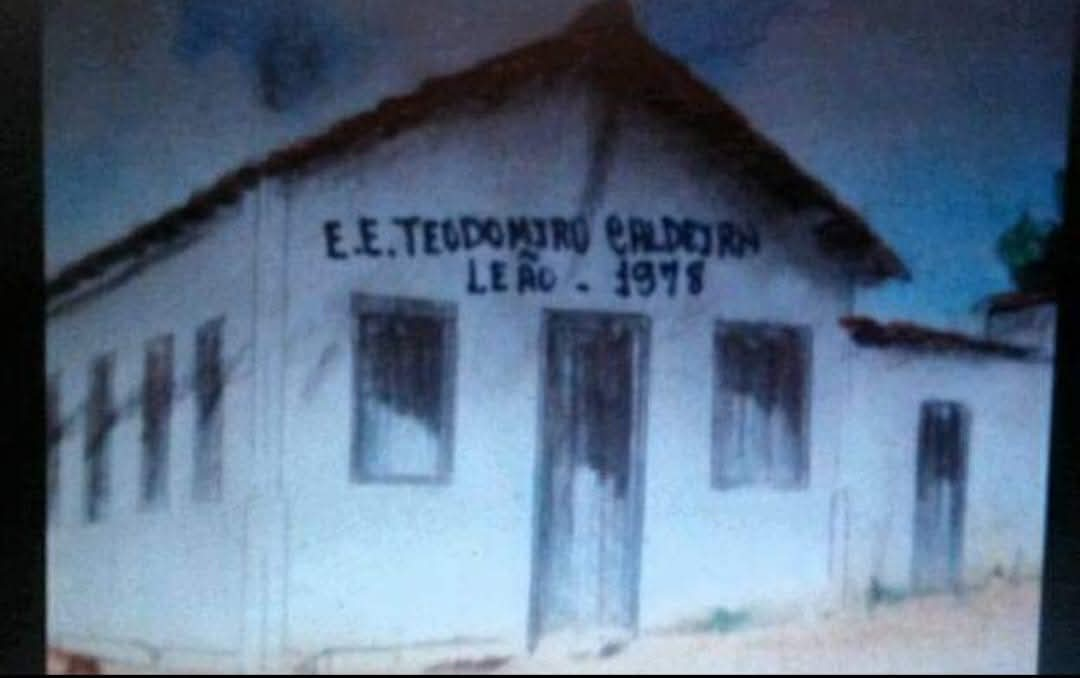 E.E. TEODOMIRO CALDEIRA
LEÃO - 1978